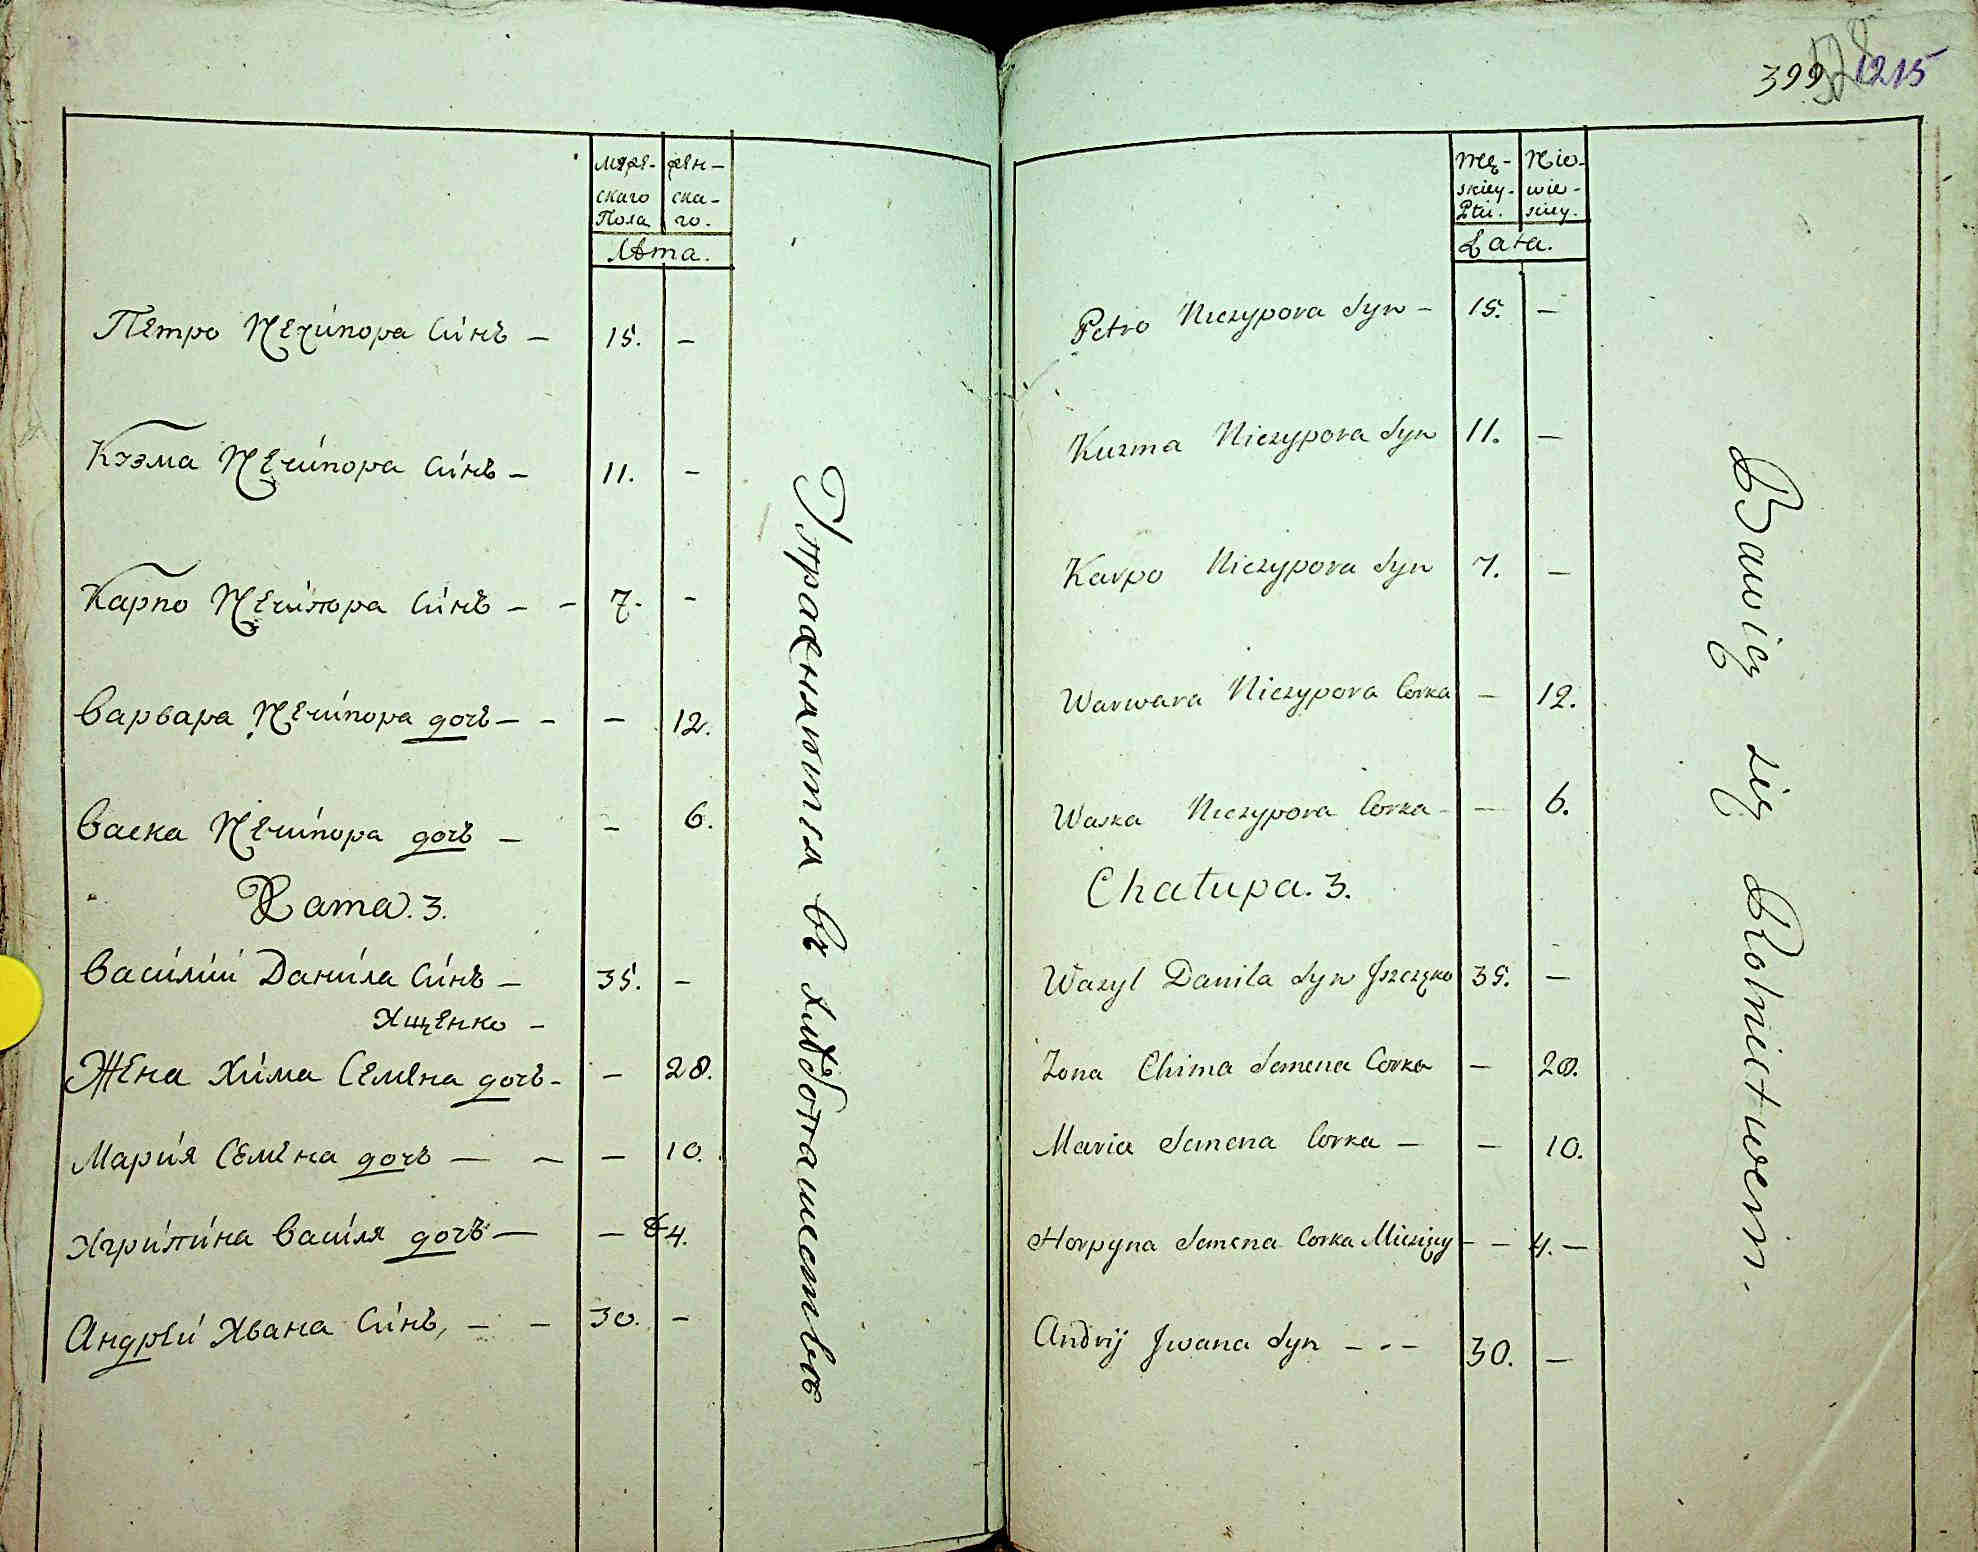 399 1215
Мужескаго Пола
женскаго.
Лѣта.
Петро Нечипора Синъ – 15. –
Кузма Нечипора Синъ – 11. –
Карпо Нечипора Синъ – – 7. –
Варвара Нечипора дочъ – – – 12.
Васка Нечипора дочъ – – 6.
Хата. 3.
Василий Данила Синъ – 35. –
Ищенко –
Жена Хима Семена дочъ – – 28.
Мария Семена дочъ – – – 10.
Агрипина Василя дочъ – – 4.
Андрѣй Ивана Синъ, – – 30. –
Упражняются въ хлѣбопашествѣ
Mę-
skiey-
Płci.
Niewie-
skiey.
Lata.
Petro Niczypora Syn – 15. –
Kuzma Niczypora Syn 11. –
Karpo Niczypora Syn 7. –
Warwara Niczypora Corka – 12.
Waska Niczypora Corka – – 6.
Chałupa. 3.
Wazyl Daniła Syn Iszczęko 35. –
Zona Chima Semena Corka – 28.
Maria Semena Corka – – 10.
Horpyna Semena Corka – – 4. –
Andrij Jwana Syn – – – 30. –
Bawią się Rolnictwem.